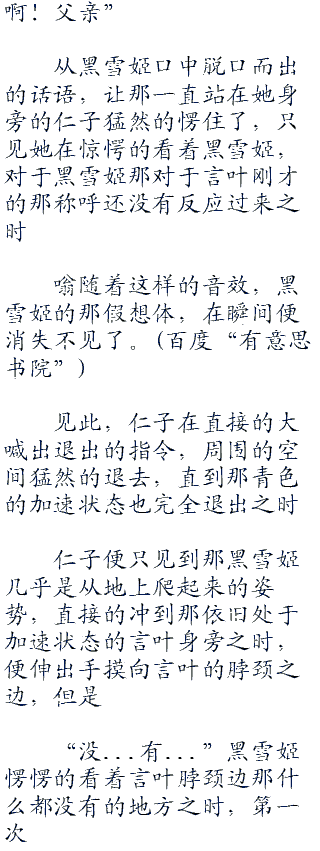 啊！父亲”
从黑雪姬口中脱口而出
的话语，让那一直站在她身
旁的仁子猛然的愣住了，只
见她在惊愕的看着黑雪姬，
对于黑雪姬那对于言叶刚才
的那称呼还没有反应过来之
时
嗡随着这样的音效，黑
雪姬的那假想体，在瞬间便
消失不见了。(百度“有意思
书院”)
见此，仁子在直接的大
喊出退出的指令，周围的空
间猛然的退去，直到那青色
的加速状态也完全退出之时
仁子便只见到那黑雪姬
几乎是从地上爬起来的姿
势，直接的冲到那依旧处于
加速状态的言叶身旁之时，
便伸出手摸向言叶的脖颈之
边，但是
“没...有...”黑雪姬
愣愣的看着言叶脖颈边那什
么都没有的地方之时，第一
次